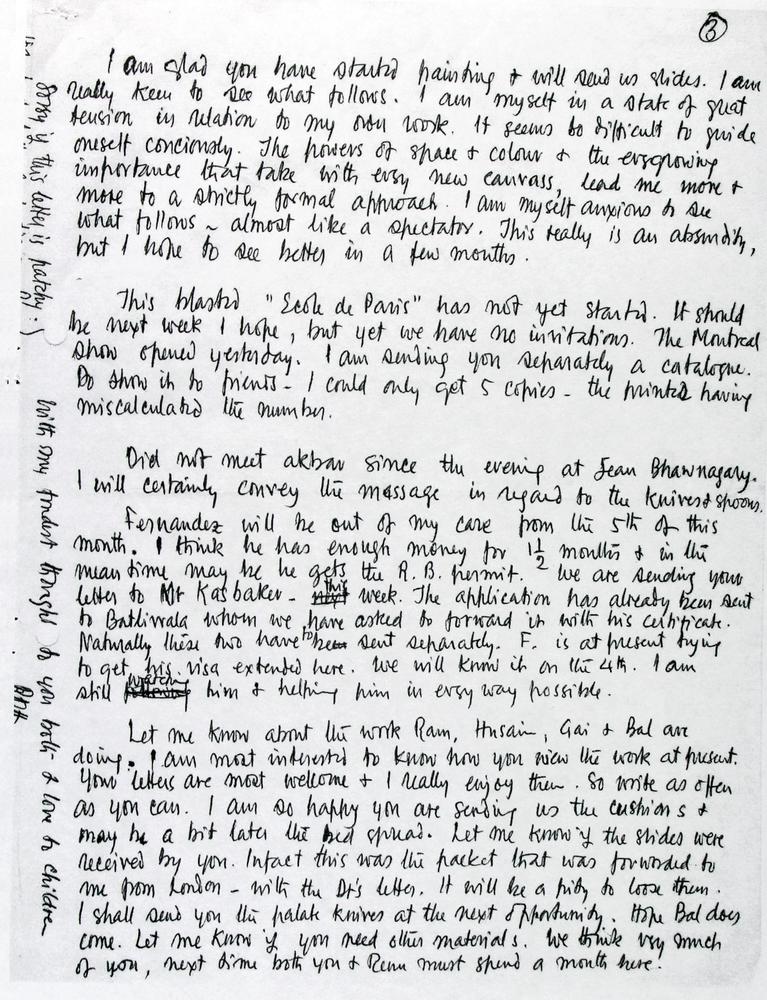 3
I am glad you have started painting & will send us slides. I am
really keen to see what follows. I am myself in a state of great
tension in relation to my own work. It seems so difficult to guide
oneself conciously. The powers of space & colour & the evergrowing
importance that take with every new canvass, lead me more &
more to a strictly formal approach. I am myself anxious to see
what follows ~ almost like a spectator. This really is an absurdity,
but I hope to see better in a few months.
This blasted "Ecole de Paris" has not yet started. It should
be next week I hope, but yet we have no invitations. The Montreal
show opened yesterday. I am sending you separately a catalogue.
Do show it to friends - I could only get 5 copies - the printer having
miscalculated the number.
Did not meet akbar since the evening at Jean Bhawnagary.
I will certainly convey the message in regard to the knives & spoons.
Fernandez will be out of my care from the 5th of this
month. I think he has enough money for 1 1/2 months & in the
meantime may be he gets the R. B. permit. We are sending your
letter to Mr Kasbaker - this week. The application has already been sent
to Batliwala whom we have asked to forward it with his certificate.
Naturally these two have to be sent separately. F. is at present trying
to get his visa extended here. We will know it on the 4th. I am
still watching him & helping him in every way possible.
Let me know about the work Ram, Husain, Gai & Bal are
doing. I am most interested to know how you view the work at present.
Your letters are most welcome & I really enjoy them. So write as often
as you can. I am so happy you are sending us the cushions &
may be a bit later the bed spread. Let me know if the slides were
received by you. Infact this was the packet that was forwarded to
me from London - with the Dr's letter. It will be a pity to loose them.
I shall send you the palate knives at the next opportunity. Hope Bal does
come. Let me know if you need other materials. We think very much
of you, next time both you & Renu must spend a month here.
Sorry if this letter is patchy.)
With my fondest thought to you both & love to children